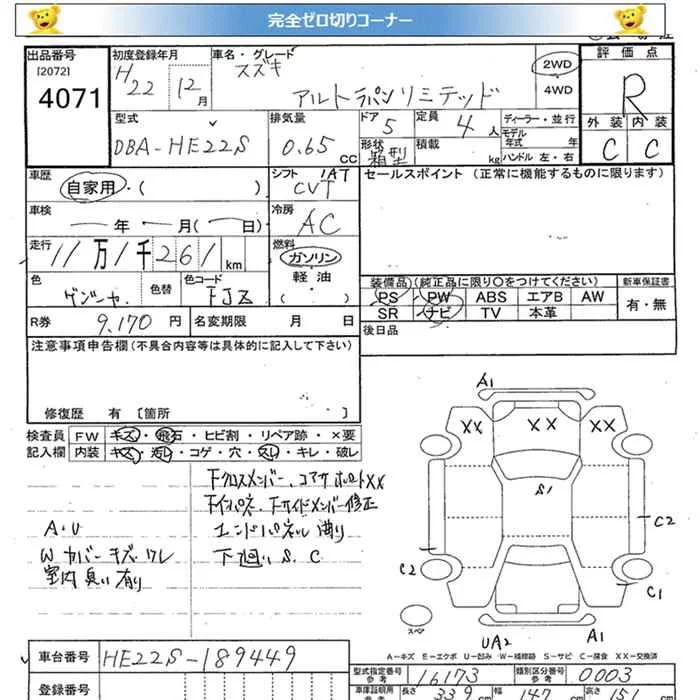 完全ゼロ切りコーナー
出品番号 初度登録年月 車名・グレード 評価点
[2072] H スズキ 2WD
4071 22 12月 アルトラパンリミテッド 4WD R
型式 排気量 ドア 定員 ディーラー・並行 外装 内装
DBA-HE22S 0.65 CC 5 4人 モデル年式 年 C C
形状 箱型 積載 kg ハンドル 左・右
車歴 シフト 1AT セールスポイント (正常に機能するものに限ります)
自家用・( ) CVT
車検 冷房
ー年 ー月(ー日) AC
走行 燃料
11万1千261km ガソリン
色 色替 色コード 軽油 装備品)(純正品に限り〇をつけてください) 新車保証書
FJZ ( ) PS PW ABS エアB AW 有・無
R券 9,170円 名変期限 月 日 SR ナビ TV 本革
後日品
注意事項申告欄(不具合内容等は具体的に記入して下さい)
修復歴 有 [箇所 ]
検査員 FW キズ・飛石・ヒビ割・リペア跡・×要
記入欄 内装 キズ・汚レ・コゲ・穴・スレ・キレ・破レ
下クロスメンバー、コアサポートXX
下インパネ、下サイドメンバー修正
A・U エンドパネル 曲り
W カバー キズ・ワレ 下廻い S、C
室内 臭い 有り
A1
XX XX XX
S1
C2
C2
C1
スペア
UA2 A1
A-キズ E-エクボ U-凹み W-補修跡 S-サビ C-腐食 XX-交換済
車台番号 HE22S-189449
型式指定番号 参考 16173 類別区分番号 参考 0003
登録番号
車庫証明用 長さ 339 cm 幅 147 cm 高さ